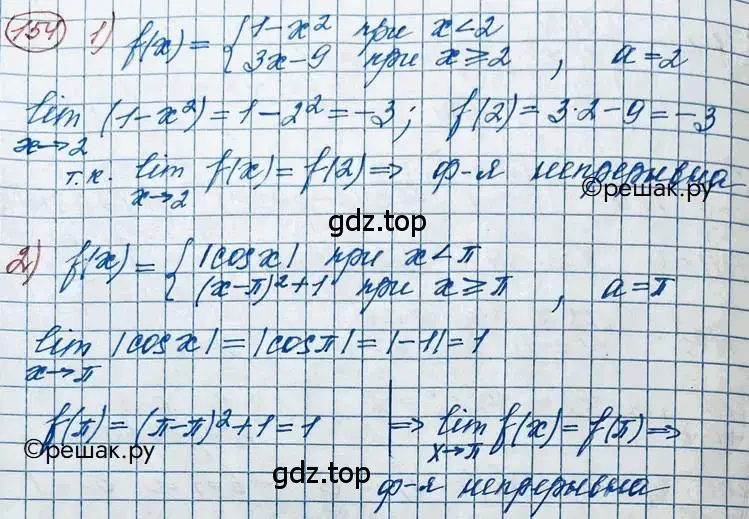 154 1) f(x) = { 1-x² при x<2
3x-9 при x⩾2 , a=2
lim (1-x²) = 1-2² = -3; f(2) = 3·2-9 = -3
x→2
т.к. lim f(x) = f(2) ⇒ ф-я непрерывна
x→2
©решак.ру
gdz.top
2) f(x) = { |cosx| при x<π
(x-π)²+1 при x⩾π , a=π
lim |cosx| = |cosπ| = |-1| = 1
x→π
f(π) = (π-π)²+1 = 1 | ⇒ lim f(x) = f(π) ⇒
x→π
©решак.ру
gdz.top
ф-я непрерывна